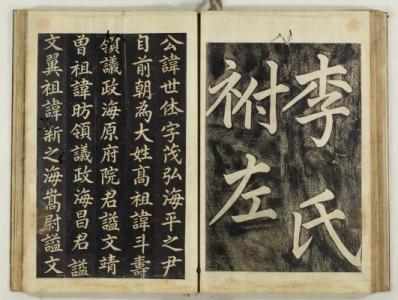 李氏
祔左
公諱世休字茂弘海平之尹
自前朝為大姓髙祖諱斗壽
領議政海原府院君謚文靖
曽祖諱昉領議政海昌君謚
文翼祖諱新之海嵩尉謚文